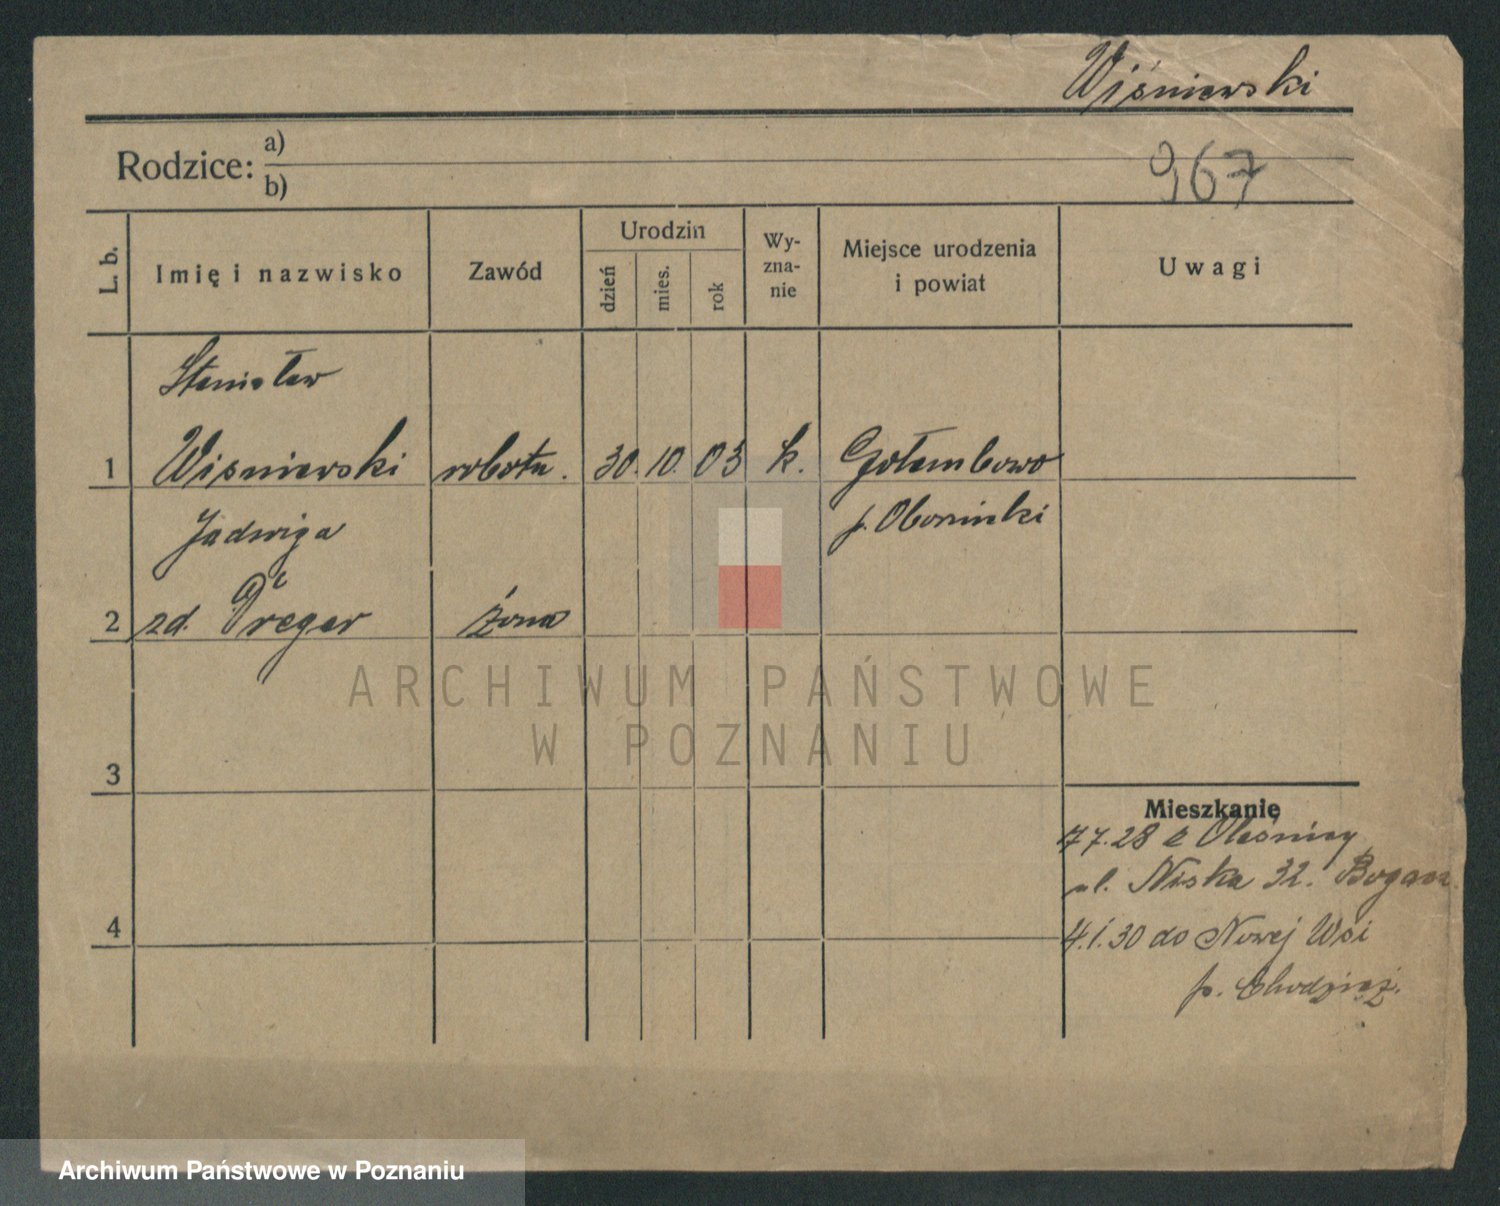 Wiśniewski
Rodzice: a)
b)
967
L. b.
Imię i nazwisko
Zawód
Urodzin
dzień
mies.
rok
Wy-
zna-
nie
Miejsce urodzenia
i powiat
Uwagi
Stanisław
1 Wisniewski robotn. 30. 10. 03 k. Gołembowo
Jadwiga p. Obornicki
2 zd. Preger żona
3
4
Mieszkanie
7.28 z Oleśnicy
ul. Niska 32.
4.1.30 do Nowej Wsi
p. Chodzież.
ARCHIWUM PAŃSTWOWE
W POZNANIU
Archiwum Państwowe w Poznaniu